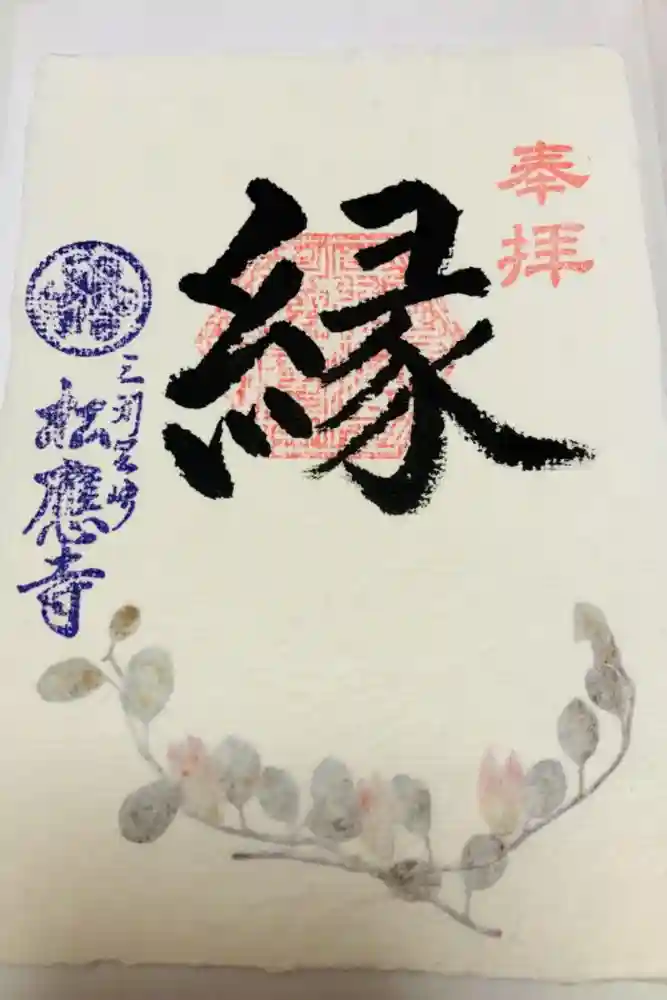 奉拝
縁
三河岡崎
松應寺